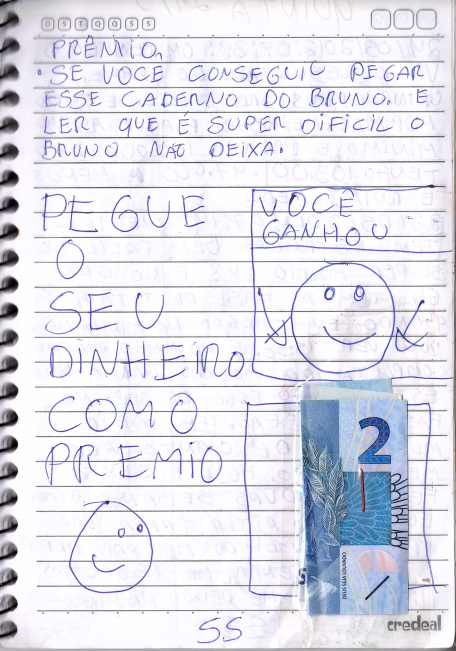 D S T Q Q S S
PRÊMIO,
• SE VOCE CONSEGUIU PEGAR
ESSE CADERNO DO BRUNO. E
LER QUE É SUPER DIFICIL O
BRUNO NAO DEIXA.
PEGUE
O
SEU
DINHEIRO
COMO
PREMIO
VOCÊ
GANHOU
2
DEUS SEJA LOUVADO
55
credeal